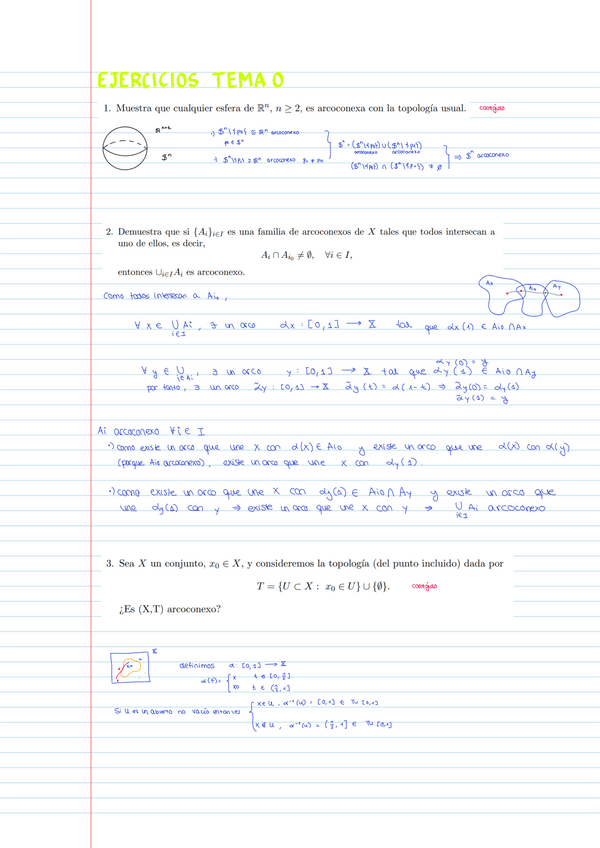 EJERCICIOS TEMA 0
1. Muestra que cualquier esfera de ℝⁿ, n ≥ 2, es arcoconexa con la topología usual.
ℝⁿ⁺¹
𝕊ⁿ
𝕊ⁿ\{p₀} ≅ ℝⁿ arcoconexo
p₀ ∈ 𝕊ⁿ
𝕊ⁿ\{p₁} ≅ ℝⁿ arcoconexo p₁ ≠ p₀
𝕊ⁿ = (𝕊ⁿ\{p₀}) ∪ (𝕊ⁿ\{p₁})
arcoconexo arcoconexo
(𝕊ⁿ\{p₀}) ∩ (𝕊ⁿ\{p₁}) ≠ ∅
⟹ 𝕊ⁿ arcoconexo
2. Demuestra que si {Aᵢ}ᵢ∈I es una familia de arcoconexos de X tales que todos intersecan a
uno de ellos, es decir,
Aᵢ ∩ Aᵢ₀ ≠ ∅, ∀i ∈ I,
entonces ∪ᵢ∈I Aᵢ es arcoconexo.
Ax Ai₀ Ay
Como todos intersecan a Ai₀,
∀ x ∈ ∪ Ai, ∃ un arco αx : [0,1] → X tal que αx(1) ∈ Ai₀ ∩ Ax
i∈I
αy(0) = y
∀ y ∈ ∪, ∃ un arco y : [0,1] → X tal que αy(1) ∈ Ai₀ ∩ Ay
i∈Ai
por tanto, ∃ un arco α̃y : [0,1] → X α̃y(t) = α(1-t) ⟹ α̃y(0) = αy(1)
α̃y(1) = y
Ai arcoconexo ∀i ∈ I
·) como existe un arco que une x con α(x) ∈ Ai₀ y existe un arco que une α(x) con α(y)
(porque Ai₀ arcoconexo), existe un arco que une x con αy(1).
·) como existe un arco que une x con αy(1) ∈ Ai₀ ∩ Ay y existe un arco que
une αy(1) con y ⟹ existe un arco que une x con y ⟹ ∪ Ai arcoconexo
i∈I
3. Sea X un conjunto, x₀ ∈ X, y consideremos la topología (del punto incluido) dada por
T = {U ⊂ X : x₀ ∈ U} ∪ {∅}.
¿Es (X,T) arcoconexo?
X
definimos α : [0,1] → X
α(t) = { x t ∈ [0,½]
x₀ t ∈ (½,1]
Si U es un abierto no vacío entonces
{ x ∈ U, α⁻¹(U) = [0,1] ∈ Tu [0,1]
x ∉ U, α⁻¹(U) = (½,1] ∈ Tu [0,1]